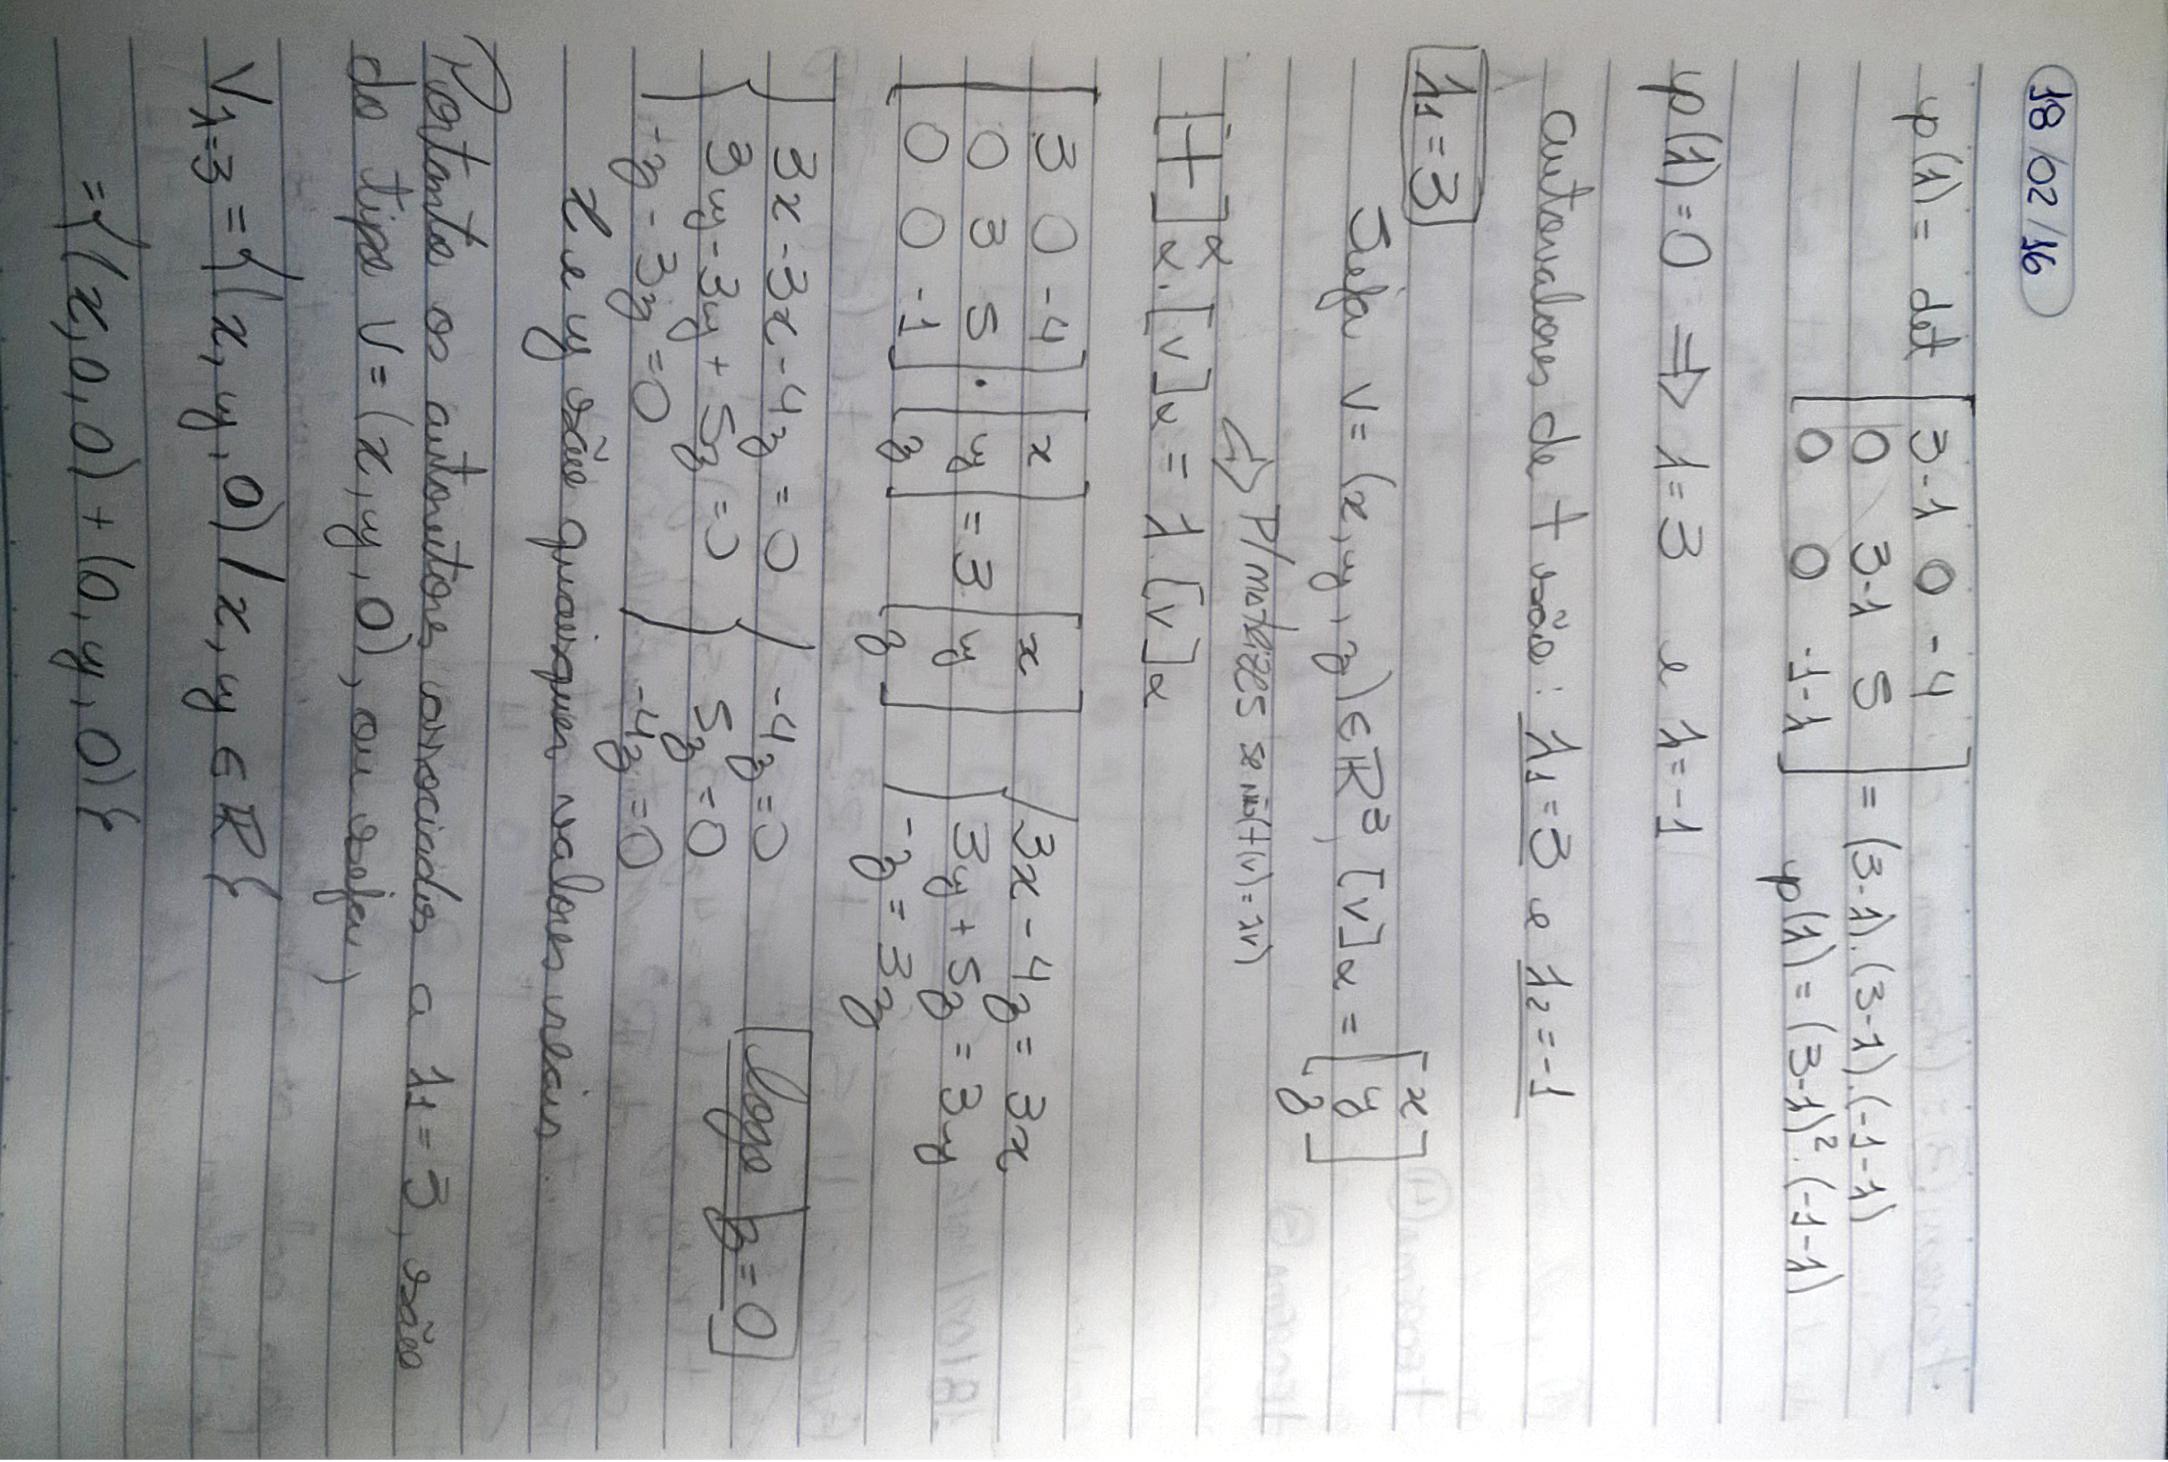 18/02/16
p(λ) = det [3-λ 0 -4
0 3-λ 5
0 0 -1-λ] = (3-λ).(3-λ).(-1-λ)
p(λ) = (3-λ)².(-1-λ)
p(λ)=0 ⇒ λ=3 e λ=-1
autovalores de T são: λ1=3 e λ2=-1
λ1=3
Seja v=(x,y,z)∈ℝ³, [v]α = [x
y
z]
⇨ P/ matrizes se não (T(v)=λv)
[T]αα.[v]α = λ.[v]α
[3 0 -4] . [x] = 3 [x] { 3x-4z=3x
[0 3 5] [y] [y] 3y+5z=3y
[0 0 -1] [z] [z] -z=3z
{ 3x-3x-4z=0 { -4z=0 logo z=0
3y-3y+5z=0 5z=0
-z-3z=0 -4z=0
x e y são quaisquer valores reais.
Portanto os autovetores associados a λ1=3, são
do tipo v=(x,y,0), ou seja,
Vλ=3 = {(x,y,0) / x,y ∈ ℝ}
= {(x,0,0)+(0,y,0)}